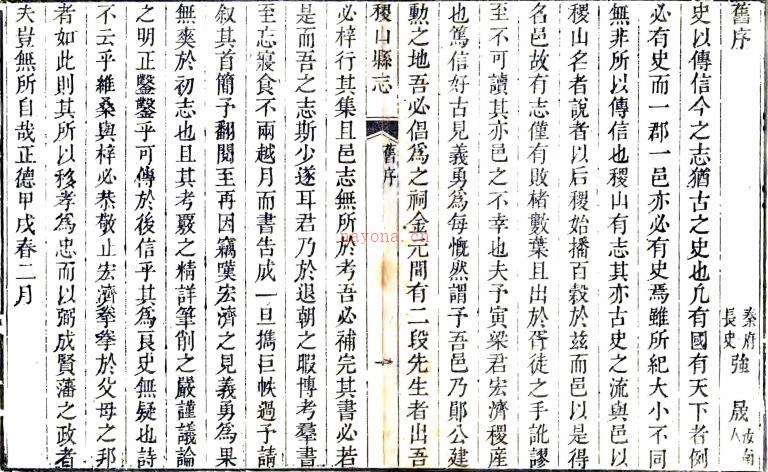 舊序
秦府長史強晟汝南人
史以傳信今之志猶古之史也凡有國有天下者例
必有史而一郡一邑亦必有史焉雖所紀大小不同
無非所以傳信也稷山有志其亦古史之流與邑以
稷山名者說者以后稷始播百穀於兹而邑以是得
名邑故有志僅有敗楮數葉且出於胥徒之手訛謬
至不可讀其亦邑之不幸也夫予寅梁君宏濟稷産
也篤信好古見義勇為每慨然謂予吾邑乃鄖公建
勲之地吾必倡為之祠金元間有二段先生者出吾
稷山縣志
舊序
一
必梓行其集且邑志無所於考吾必補完其書必若
是而吾之志斯少遂耳君乃於退朝之暇博考羣書
至忘寢食不兩越月而書告成一旦攜巨帙過予請
叙其首簡予翻閱至再因竊嘆宏濟之見義勇為果
無爽於初志也且其考覈之精詳筆削之嚴謹議論
之明正鑿鑿乎可傳於後信乎其為良史無疑也詩
不云乎維桑與梓必恭敬止宏濟拳拳於父母之邦
者如此則其所以移孝為忠而以弼成賢藩之政者
夫豈無所自哉正德甲戌春二月
nayona.cn